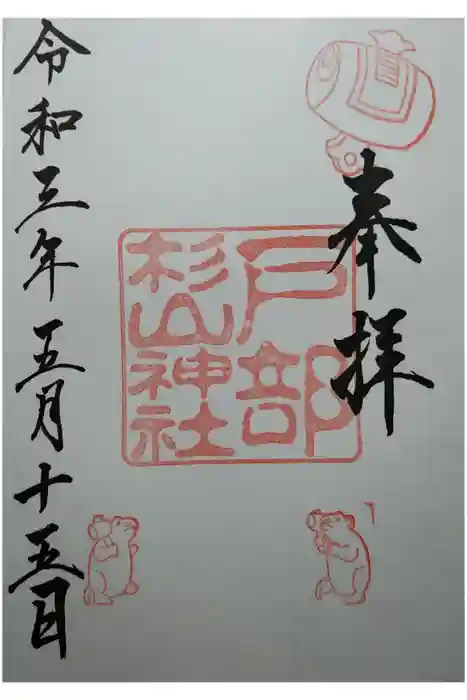 奉拝
戸部
杉山神社
令和三年五月十五日